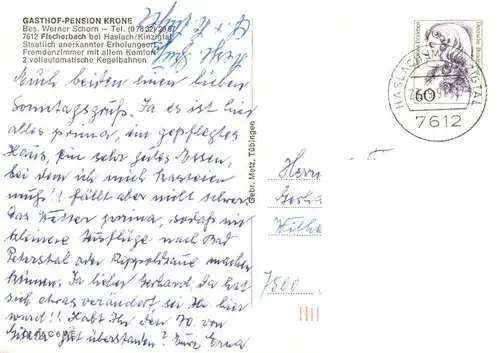 GASTHOF-PENSION KRONE
Bes. Werner Schorn – Tel. (07832) 2967
7612 Fischerbach bei Haslach/Kinzigtal
Staatlich anerkannter Erholungsort
Fremdenzimmer mit allem Komfort
2 vollautomatische Kegelbahnen
Euch beiden einen lieben
Sonntagsgruß. Ja es ist
alles prima, ein gepflegtes
Haus, ein sehr gutes Essen,
bei dem ich mich kasteien
muß!! fällt aber nicht schwer
das Wetter prima, sodaß wir
kleinere Ausflüge nach Bad
Peterstal oder Rippoldsau machen
können. Ja lieber Gerhard, da hat
sich etwas verändert, seit Ihr hier
ward!! Habt Ihr den 70. von
gut überstanden? Eure Erna
Gebr. Metz, Tübingen
60
HASLACH KINZIGTAL
7612
Herrn
7500